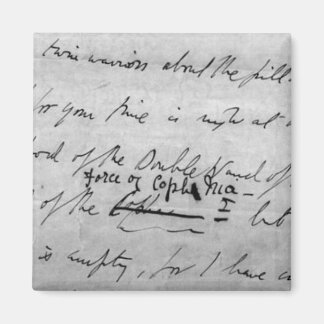 twin warriors about the pill
for your time is nigh at
ord of the Double Wand of
force of Coph Nia —
of the but
is empty, for I have